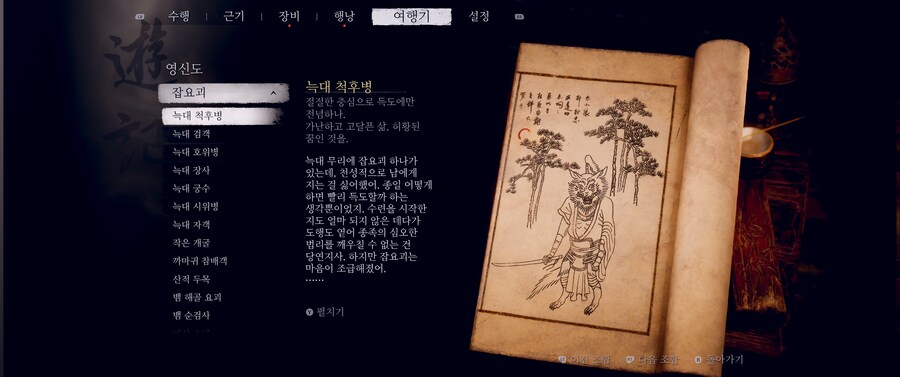 수행
근기
장비
행낭
여행기
설정
遊記
영신도
잡요괴
늑대 척후병
늑대 검객
늑대 호위병
늑대 장사
늑대 궁수
늑대 시위병
늑대 자객
작은 개굴
까마귀 참배객
산적 두목
뱀 해골 요괴
뱀 순검사
늑대 척후병
절절한 충심으로 득도에만
전념하나,
가난하고 고달픈 삶, 허황된
꿈인 것을.
늑대 무리에 잡요괴 하나가
있는데, 천성적으로 남에게
지는 걸 싫어했어. 종일 어떻게
하면 빨리 득도할까 하는
생각뿐이었지. 수련을 시작한
지도 얼마 되지 않은 데다가
도행도 얕아 종족의 심오한
법리를 깨우칠 수 없는 건
당연지사. 하지만 잡요괴는
마음이 조급해졌어.
……
Y 펼치기
이전 조합
다음 조합
B 돌아가기